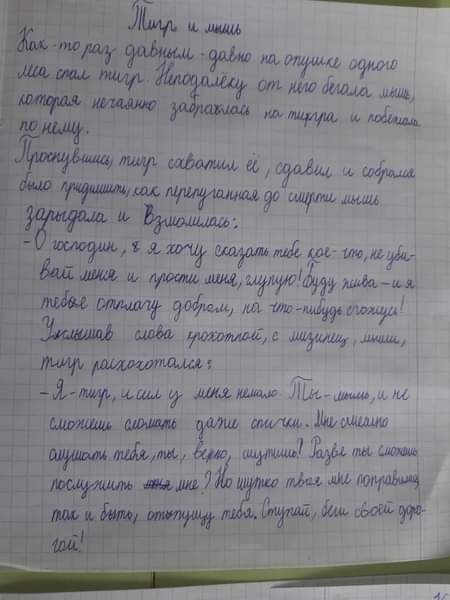 Тигр и мышь
Как-то раз давным-давно на опушке одного
леса спал тигр. Неподалёку от него бегала мышь,
которая нечаянно забралась на тигра и побежала
по нему.
Проснувшись, тигр схватил её, сдавил и собрался
было придушить, как перепуганная до смерти мышь
зарыдала и взмолилась:
- О господин, я хочу сказать тебе кое-что, не уби-
вай меня и прости меня, глупую! Буду жива - и я
тебе отплачу добром, на что-нибудь сгожусь!
Услышав слова крохотной, с мизинец, мыши,
тигр расхохотался:
- Я - тигр, и сил у меня немало. Ты - мышь, и не
сможешь сломать даже спички. Мне смешно
слушать тебя, ты, верно, шутишь! Разве ты сможешь
послужить мне? Но шутка твоя мне понравилась,
так и быть, отпущу тебя. Ступай, беги своей доро-
гой!